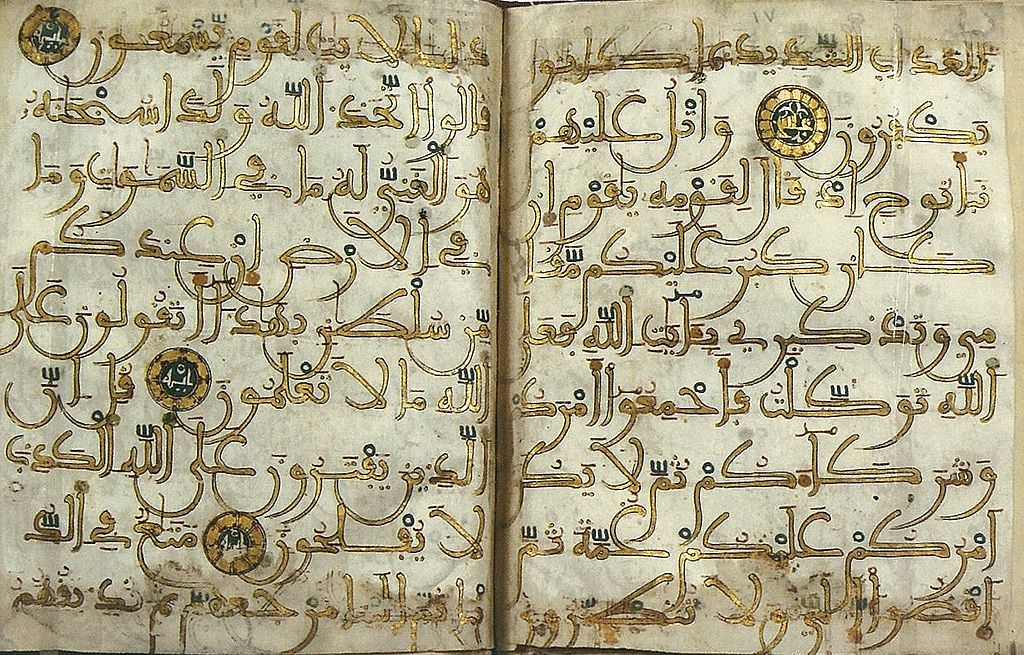 ذلك لايت لقوم يسمعون
قالوا اتخذ الله ولدا سبحنه
هو الغني له ما في السموت وما
في الارض ان عندكم
من سلطن بهذا اتقولون على
الله ما لا تعلمون اية قل ان
الذين يفترون على الله الكذب
لا يفلحون اية متع في الد
نيا ثم الينا مرجعهم ثم نذيقهم
العذاب الشديد بما كانوا
يكفرون واتل عليهم
نبا نوح اذ قال لقومه يقوم ان
كان كبر عليكم مقا
مي وتذكيري بايت الله فعلى
الله توكلت فاجمعوا امركم
وشركاءكم ثم لا يكن
امركم عليكم غمة ثم
اقضوا الي ولا تنظرون